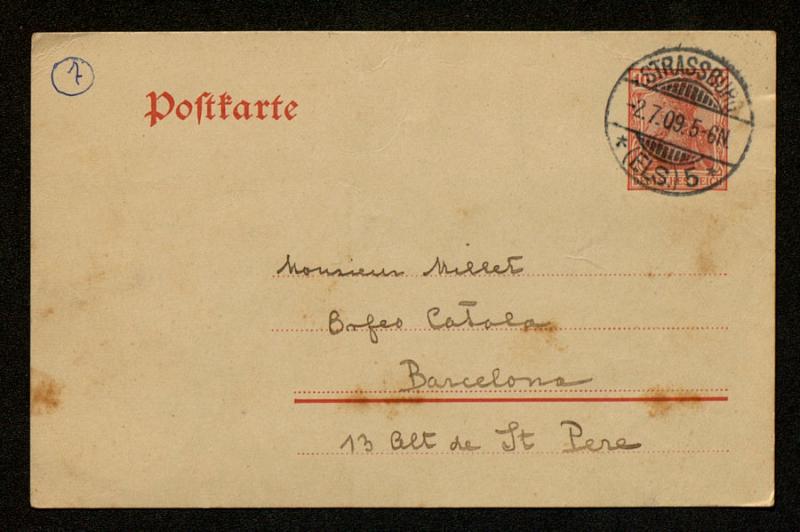 7
Postkarte
STRASSBURG
-2.7.09.5-6N.
* (ELS.) 5 *
DEUTSCHES REICH
Monsieur Millet
Orfeo Catala
Barcelona
13 Alt de St Pere